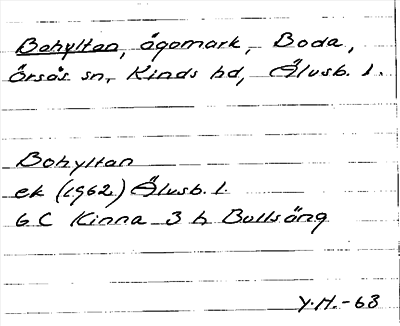 Bohyltan, ägomark, Boda,
Örsås sn, Kinds hd, Älvsb. l.
Bohyltan
ek (1962) Älvsb. l.
6 C Kinna 3 h Bullsäng
Y.H.-63